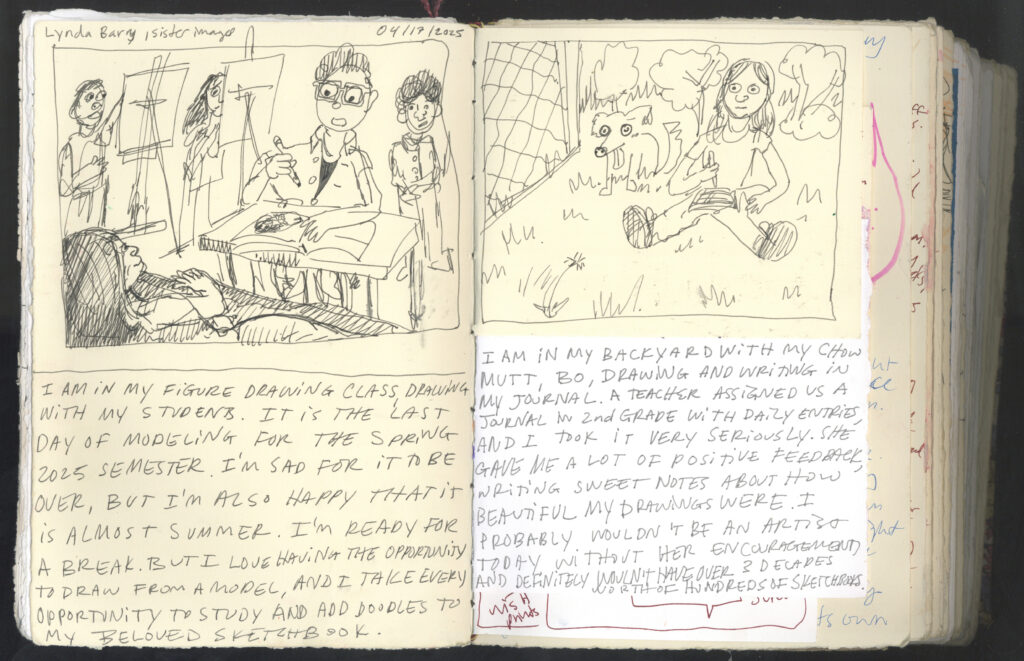 Lynda Barry, sister image
04/17/2025
I AM IN MY FIGURE DRAWING CLASS, DRAWING
WITH MY STUDENTS. IT IS THE LAST
DAY OF MODELING FOR THE SPRING
2025 SEMESTER. I'M SAD FOR IT TO BE
OVER, BUT I'M ALSO HAPPY THAT IT
IS ALMOST SUMMER. I'M READY FOR
A BREAK. BUT I LOVE HAVING THE OPPORTUNITY
TO DRAW FROM A MODEL, AND I TAKE EVERY
OPPORTUNITY TO STUDY AND ADD DOODLES TO
MY BELOVED SKETCHBOOK.
I AM IN MY BACKYARD WITH MY CHOW
MUTT, BO, DRAWING AND WRITING IN
MY JOURNAL. A TEACHER ASSIGNED US A
JOURNAL IN 2nd GRADE WITH DAILY ENTRIES,
AND I TOOK IT VERY SERIOUSLY. SHE
GAVE ME A LOT OF POSITIVE FEEDBACK,
WRITING SWEET NOTES ABOUT HOW
BEAUTIFUL MY DRAWINGS WERE. I
PROBABLY WOULDN'T BE AN ARTIST
TODAY WITHOUT HER ENCOURAGEMENT,
AND DEFINITELY WOULDN'T HAVE OVER 3 DECADES
WORTH OF HUNDREDS OF SKETCHBOOKS.
wish